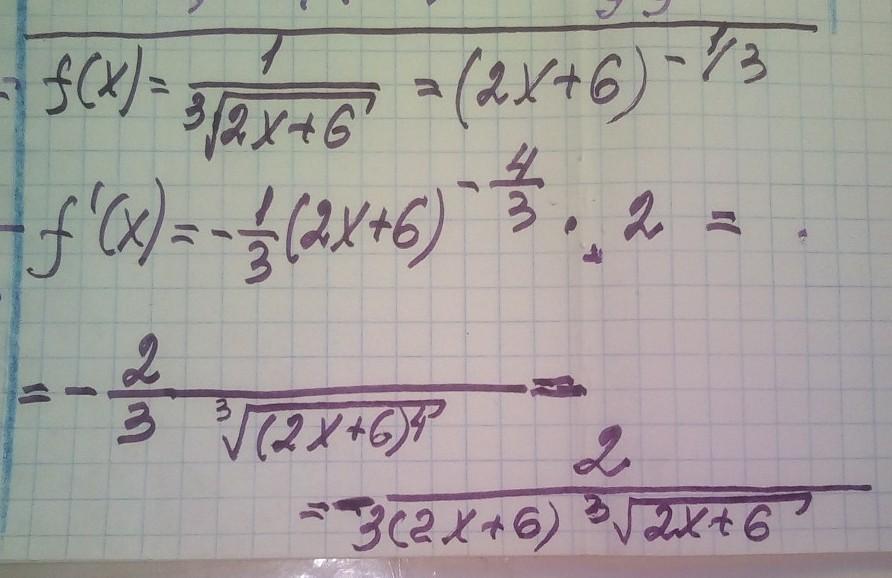 f(x) = 1/∛(2x+6) = (2x+6)^(-1/3)
f'(x) = -1/3 (2x+6)^(-4/3) · 2 =
= - 2/(3 ∛((2x+6)^4)) =
= - 2/(3(2x+6) ∛(2x+6))